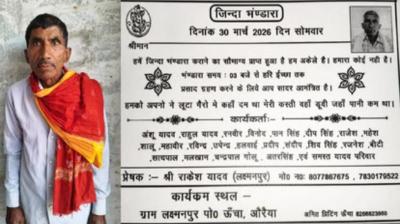 जिन्दा भण्डारा
दिनांक 30 मार्च 2026 दिन सोमवार
श्रीमान
हमें जिन्दा भण्डारा कराने का सौभाग्य प्राप्त हुआ है हम अकेले है। हमारा कोई नही है।
भण्डारा समय : 03 बजे से हरि ईच्छा तक
प्रसाद ग्रहण करने के लिए आप सादर आमन्त्रित है।
हमको अपनो ने लूटा गैरो मे कहाँ दम था मेरी कस्ती वहाँ डूबी जहाँ पानी कम था।
कार्यकर्ताः-
अंशू यादव ,राहुल यादव ,रनबीर, विनोद ,पान सिंह ,दीप सिंह ,राजेश ,महेश
,शालू ,महावीर ,रविन्द्र ,उपेन्द्र ,हलवाई ,प्रदीप ,संदीप ,शिव सिंह ,रजनेश ,बीटी
,सत्यपाल ,मलखान ,चन्द्रपाल गोलू , अतरसिंह ,एवं समस्त यादव परिवार
प्रेषक : श्री राकेश यादव (लक्ष्मनपुर) मो० नं०: 8077867675, 7830179522
कार्यकम स्थल -
ग्राम लक्ष्मनपुर पो0 ऊँचा, औरैया
अमित प्रिंटिंग ऊँचा